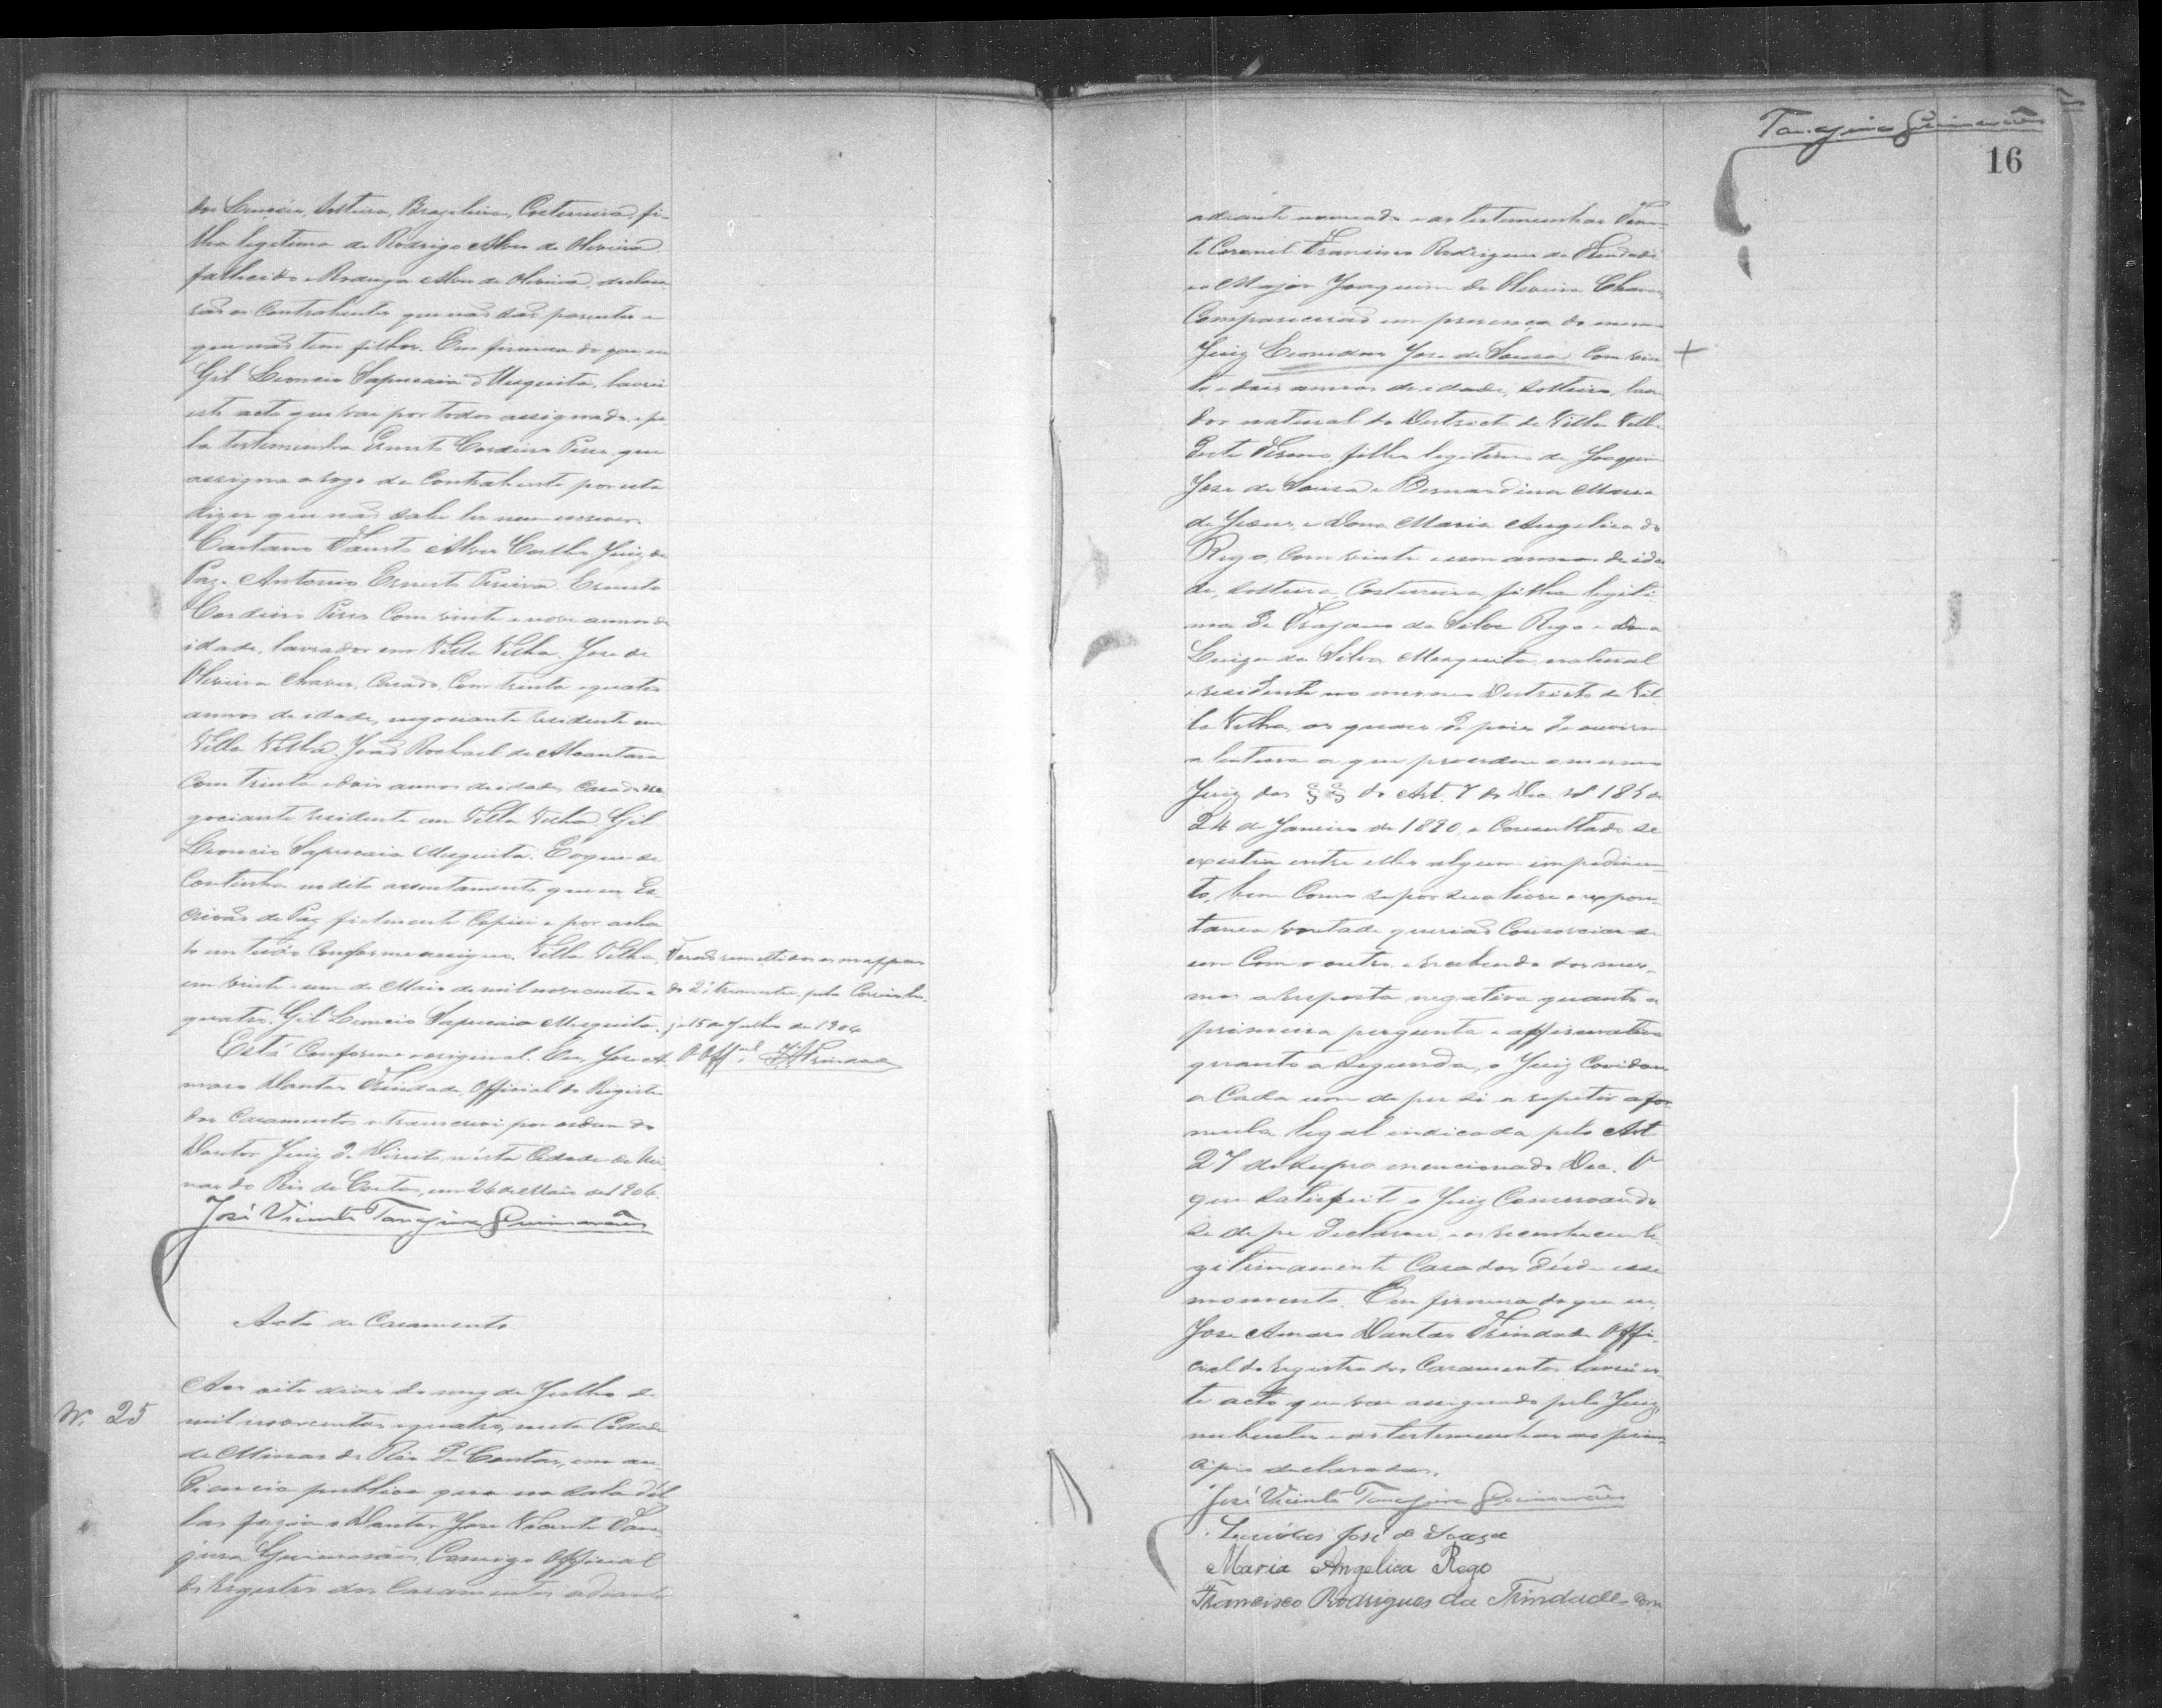 dos Lencóes, solteira, Brazileira, Costureira, fi-
lha legitima de Rodrigo Alves de Oliveira
fallecido e Rodriga Alves de Oliveira, declara
rão os Contrahentes que não são parentes e
que não tem filhos. Em firmeza do que eu
Gil Leoncio Sapucaia Mesquita, lavrei
este acto que vai por todos assignado e pe
la testemunha Ernesto Cordeiro Pires, que
assigna a rogo da Contrahente por esta
dizer que não sabe ler nem escrever.
Caetano Fausto Alves Coelho Juiz de
Paz. Antonio Ernesto Pereira. Ernesto
Cordeiro Pires Com vinte e nove annos de
idade, lavrador em Villa Velha. Jose de
Oliveira Chaves, Casado, Com trinta e quatro
annos de idade, negociante residente em
Villa Velha. João Rochael de Alcantara
Com trinta e dois annos de idade, Casado ne
gociante residente em Villa Velha. Gil
Leoncio Sapucaia Mesquita. E o que se
Continha no dito assentamento que eu Es-
crivão de Paz fielmente Copiei e por acha
lo em tudo Conforme assigno. Villa Velha,
em vinte e um de Maio de mil novecentos e
quatro. Gil Leoncio Sapucaia Mesquita.
Está Conforme o original. Eu, Jose A-
maro Dantas Trindade, Official do Registro
dos Casamentos o transcrevi por ordem do
Doutor Juiz de Direito, n'esta Cidade de Mi
nas do Rio de Contas, em 26 de Maio de 1904.
José Vicente Tanajura Guimarães
Forão remettidos os mappas
do 2º trimestre pelo Correio
15 de Julho de 1904
O Offal. Trindade
Acto de Casamento
N. 25
Aos oito dias do mez de Julho de
mil novecentos e quatro, nesta Cidade
de Minas do Rio de Contas, em au
diencia publica que na sala del
las fazia o Doutor Jose Vicente Tana
jura Guimarães, Comigo Official
do Registro dos Casamentos adiante
Tanajura Guimarães
16
adiante nomeado e as testemunhas Tenen
te Coronel Francisco Rodrigues da Trindade
e o Major Joaquim de Oliveira Chaves,
Comparecerão em presença do mesmo
Juiz Leonidas Jose de Sousa Com vin +
te e dois annos de idade, solteiro, lavra
dor natural do Districto de Villa Velha
deste Termo, filho legitimo de Joaquim
Jose de Sousa e Bernardina Maria
de Jesus, e Dona Maria Angelica do
Rego, Com vinte e um annos de ida
de, solteira, Costureira, filha legiti
ma de Trajano da Silva Rego e Dona
Luiza da Silva Mesquita, natural
e residente no mesmo Districto de Vil
la Velha, os quaes depois de ouvirem
a leitura a que procedeu o mesmo
Juiz dos §§ do Art. 7 do Dec. nº 181 de
24 de Janeiro de 1890, e Consultado se
existia entre elles algum impedimen
to, bem Como se por sua livre e expon-
tanea vontade querião Consorciar se
um Com o outro, e recebendo dos mes-
mos a resposta negativa quanto a
primeira pergunta e affirmativa
quanto a segunda, o Juiz Convidou
a Cada um de per si a repetir a for
mula legal indicada pelo Art
27 do supra mencionado Dec. O
que satisfeito o Juiz Conservando
se de pe declarou e os reconheceu le
gitimamente Casados desde esse
momento. Em firmeza do que eu,
Jose Amaro Dantas Trindade Offi-
cial do registro dos Casamentos lavrei es
te acto que vae assignado pelo Juiz,
nubentes e as testemunhas ao prin
cipio declaradas.
José Vicente Tanajura Guimarães
Leonidas José de Souza
Maria Angelica Rego
Francisco Rodrigues da Trindade, com